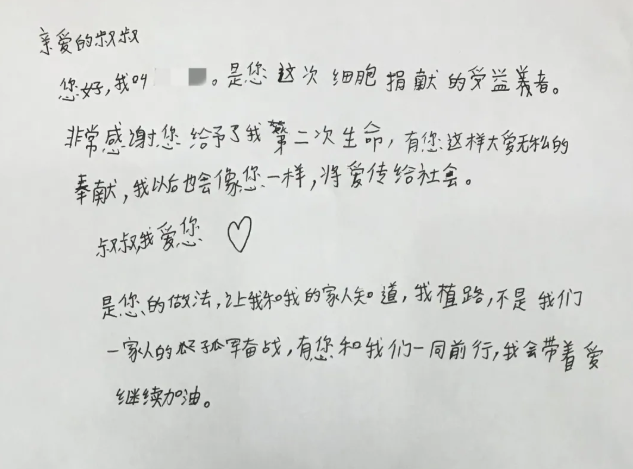 亲爱的叔叔
您好,我叫 。是您 这次 细胞 捐献 的受益者。
非常感谢您 给予了我 第二次生命,有您这样大爱无私的
奉献,我以后也会像您一样,将爱传给社会。
叔叔,我爱您 ♡
是您的做法,让我和我的家人知道,我植路,不是我们
一家人的孤军奋战,有您和我们一同前行,我会带着爱
继续加油。